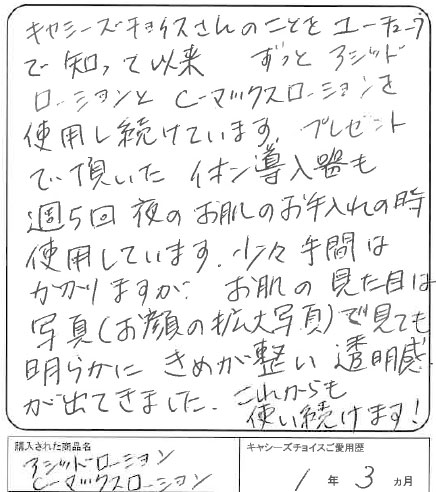 キャシーズチョイスさんのことを ユーチューブ
で知って以来 ずっと アシッド
ローションと C-マックスローションを
使用し続けています。プレゼント
で頂いた イオン導入器も
週5回 夜の お肌のお手入れの時
使用しています。少々手間は
かかりますが、お肌の見た目は
写真(お顔の拡大写真)で見ても
明らかに きめが整い 透明感
が出てきました。これからも
使い続けます!
購入された商品名
アシッドローション
C-マックスローション
キャシーズチョイスご愛用歴
1年3ヵ月